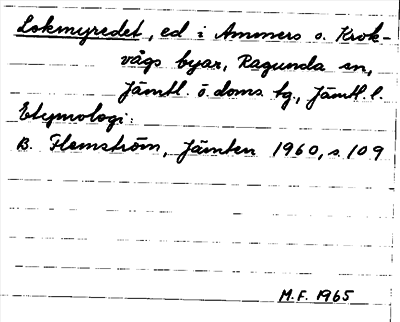 Lokmyredet, ed i Ammers o. Krok-
vågs byar, Ragunda sn,
Jämtl. ö. doms. tg, Jämtl. l.
Etymologi:
B. Flemström, Jämten 1960, s. 109
M.F. 1965